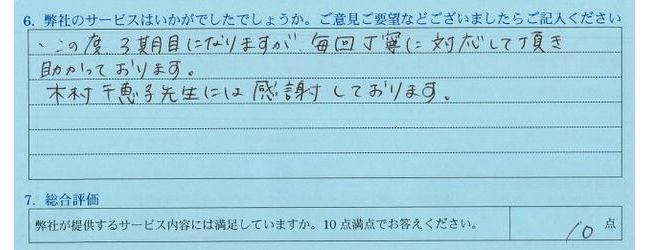 6. 弊社のサービスはいかがでしたでしょうか。ご意見ご要望などございましたらご記入ください
、この度、3期目になりますが、毎回丁寧に対応して頂き
助かっております。
木村千恵子先生には感謝しております。
7. 総合評価
弊社が提供するサービス内容には満足していますか。10点満点でお答えください。 10 点